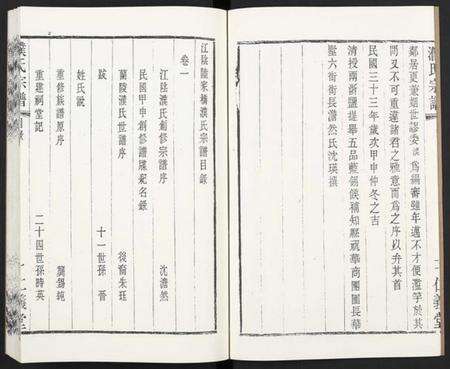 濮氏宗譜
鄰居更兼姻世謬委 為綢審雖年邁不才便濫竽於其
間又不可重違諸君之雅意而為之序以弁其首
民國三十三年歲次甲申仲冬之吉
清授兩浙鹽提舉五品藍翎候補知縣 華商團團長華
墅六街街長澹然氏沈瑛撰
仁義堂
濮氏宗譜
目錄
江陰陵家橋濮氏宗譜目錄
卷一
江陰濮氏創修宗譜序 沈澹然
民國甲申創修譜牒紀名錄
蘭陵濮氏世譜序 後裔朱珏
跋 十一世孫 晉
姓氏說
重修族譜原序 龔錫純
重建祠堂記 二十四世孫時英
仁義堂